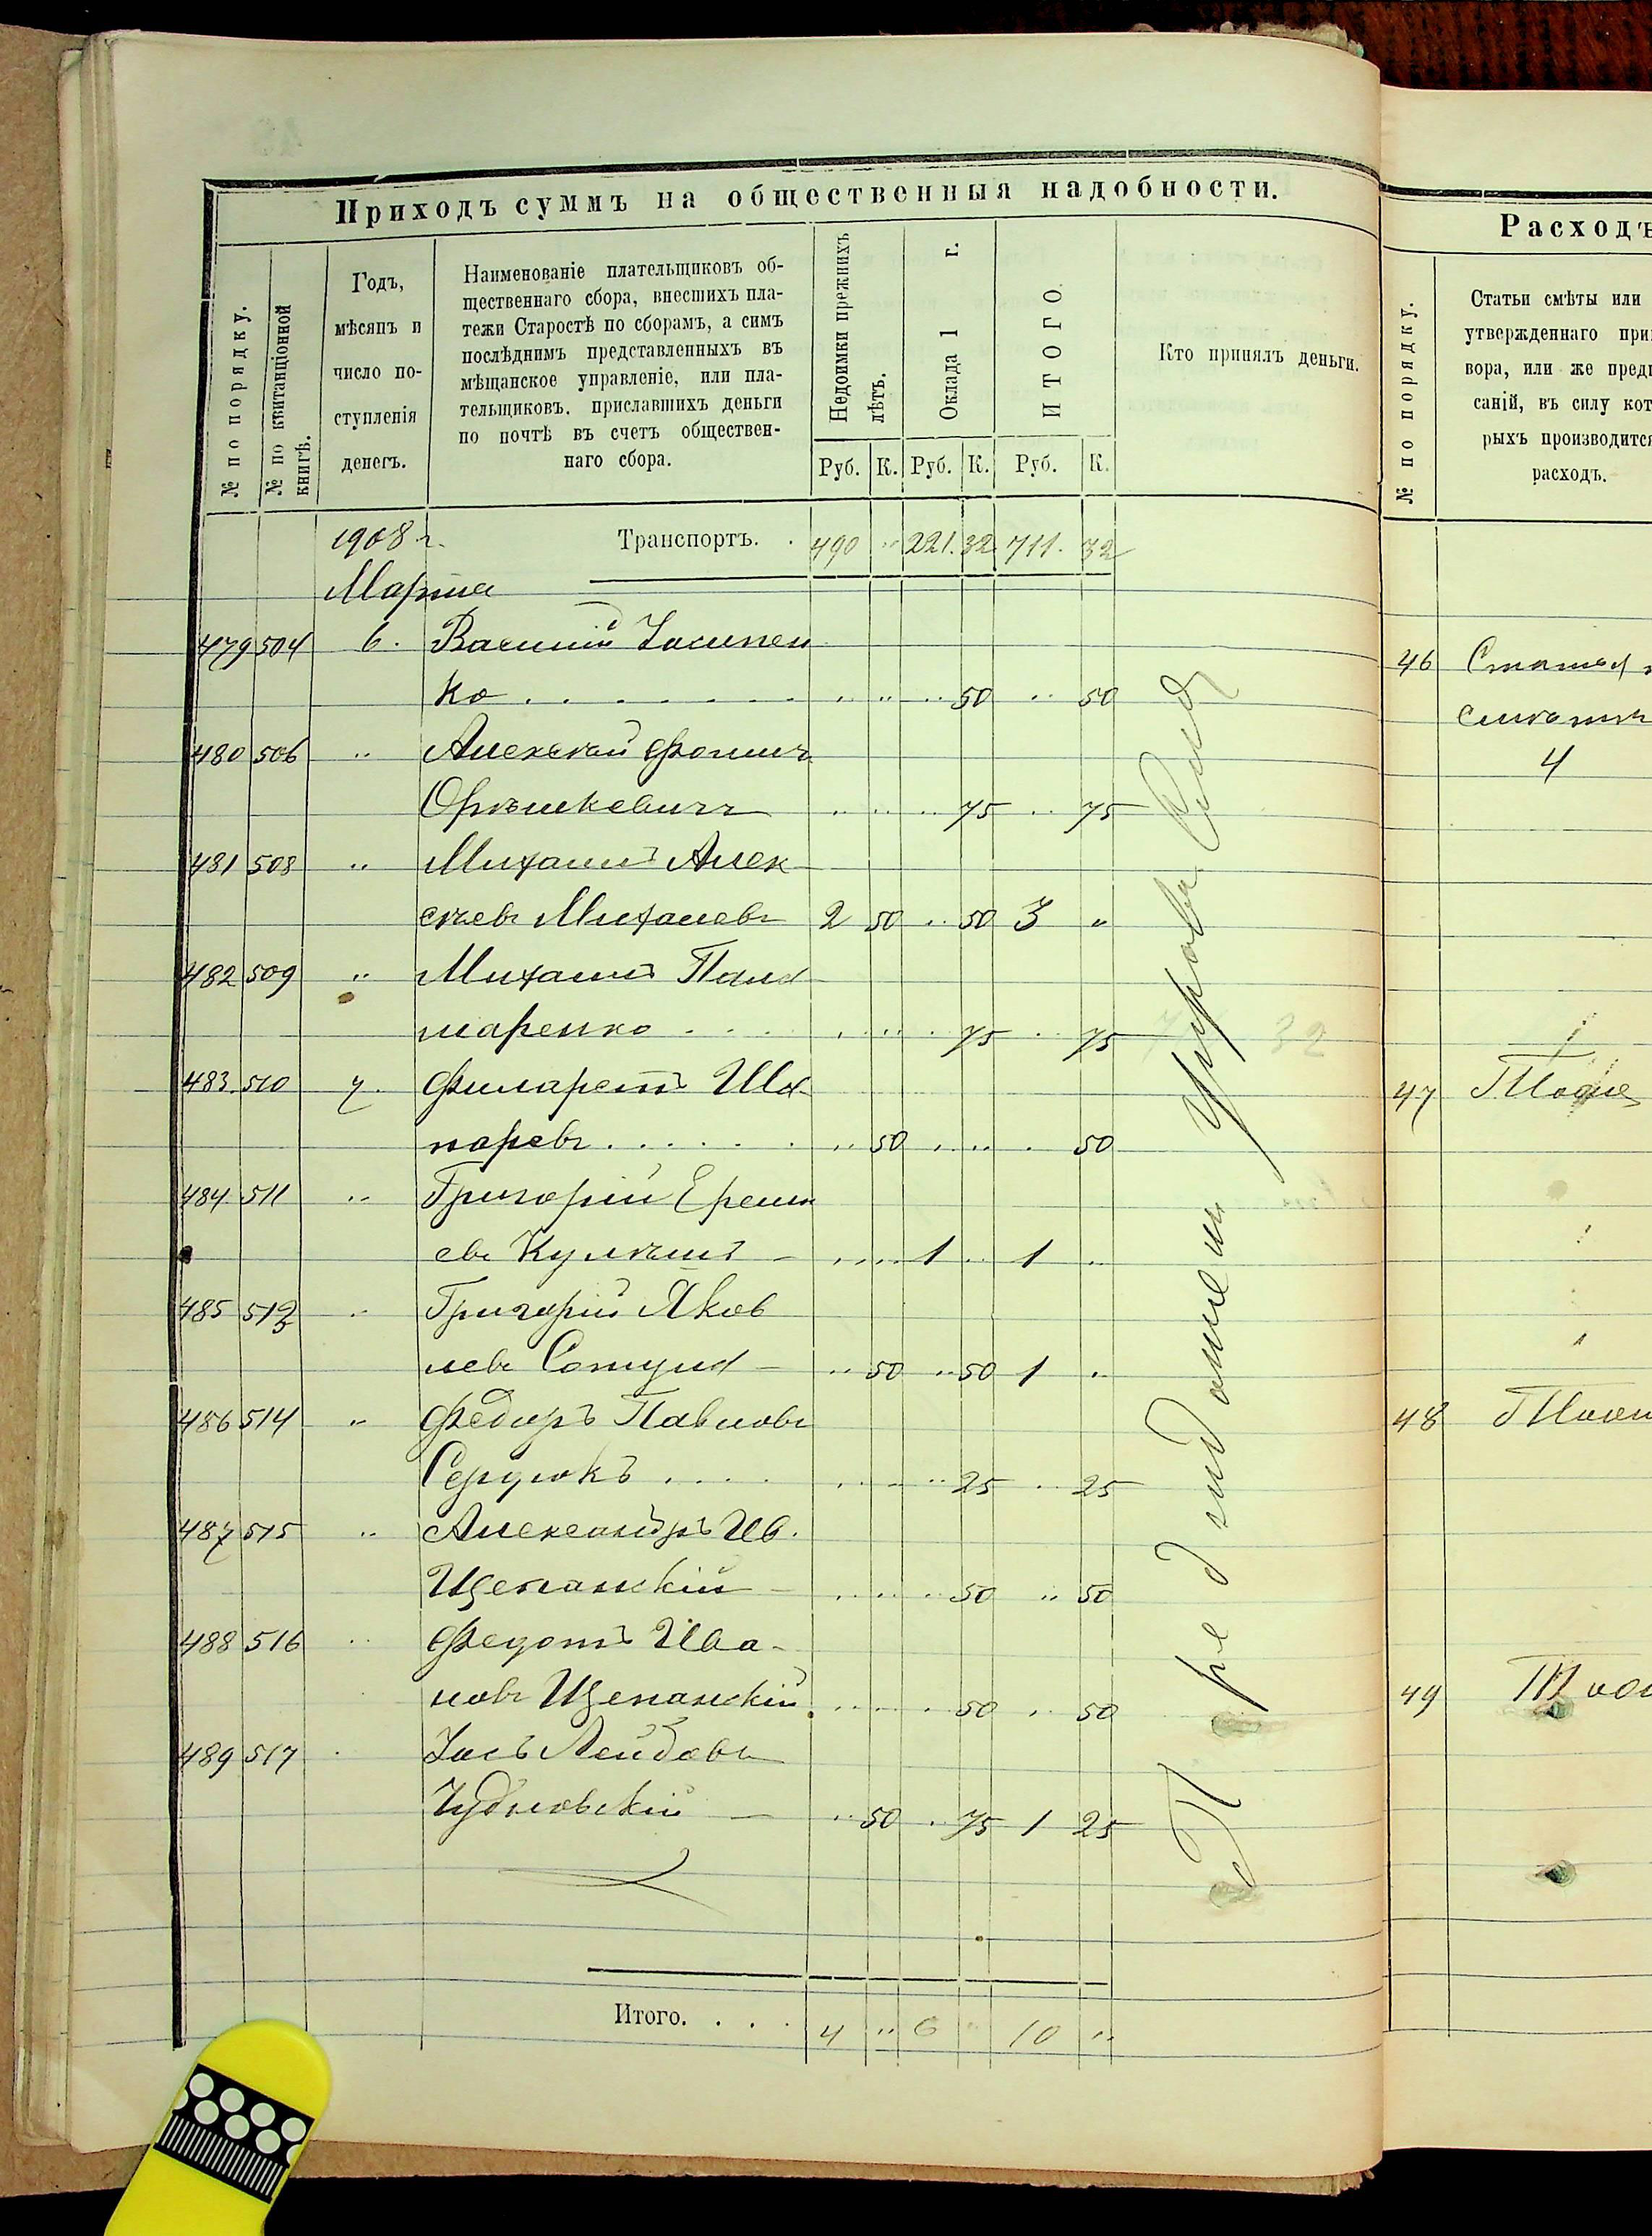 Приходъ суммъ на общественныя надобности.
№ по порядку.
№ по квитанціонной книгѣ.
Годъ,
мѣсяцъ и
число по-
ступленія
денегъ.
Наименованіе плательщиковъ об-
щественнаго сбора, внесшихъ пла-
тежи Старостѣ по сборамъ, а симъ
послѣднимъ представленныхъ въ
мѣщанское управленіе, или пла-
тельщиковъ, приславшихъ деньги
по почтѣ въ счетъ обществен-
наго сбора.
Недоимки прежнихъ лѣтъ.
Оклада 1 г.
ИТОГО.
Кто принялъ деньги.
Руб. К. Руб. К. Руб. К.
1908 г. Транспортъ. 490 " 221. 32 711. 32
Марта
479 504 6. Василій Іосипен
ко 50 50
480 506 " Алексѣй Фомичъ
75 75
481 508 " Михаилъ Алек
сѣевъ Михалевъ 2 50 50 3 "
482 509 " Михаилъ Пала
маренко 75 75
483 510 7. Филаретъ Ша
поревъ 50 50
484 511 " Григорій Ереме
евъ 1 1 "
485 513 " Григорій Яков
левъ Сотула 50 50 1 "
486 514 " Федоръ Павловъ
Сердюкъ 25 25
487 515 " Александръ Ив.
Щепанскій 50 50
488 516 " Федотъ Ива-
новъ Щепанскій 50 50
489 517 Іосъ Лейбовъ
Чудновскій 50 75 1 25
Итого. 4 " 6 " 10 "
Расходъ
№ по порядку.
Статьи смѣты или
утвержденнаго при
вора, или же пред
саній, въ силу кот
рыхъ производитс
расходъ.
46 Статья
4
47
48
49